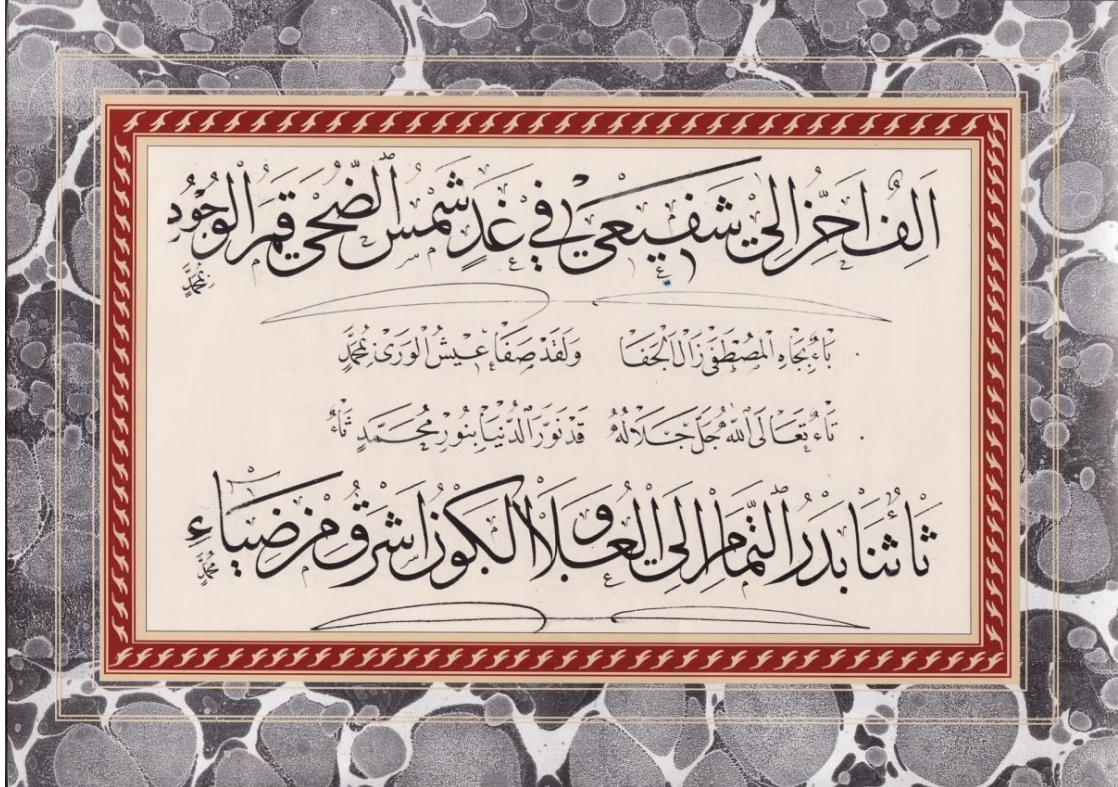 اَلِفٌ اَحِنُّ اِلىٰ شَفيعي في غَدٍ شَمْسُ الضُّحىٰ قَمَرُ الوُجُودِ مُحَمَّدٌ
بَاءٌ بِجَاهِ الْمُصْطَفىٰ زَالَ الْجَفَا وَلَقَدْ صَفَا عَيْشُ الْوَرىٰ بِمُحَمَّدٍ
تَاءٌ تَعَالَى اللهُ جَلَّ جَلَالُهُ قَدْ نَوَّرَ الدُّنْيَا بِنُورِ مُحَمَّدٍ ثَاءٌ
ثا ثنا بَدْرُ التَّمَامِ اِلَى العُلا وَالكَوْنُ اَشْرَقَ مِنْ ضِيَاءِ مُحَمَّدٍ